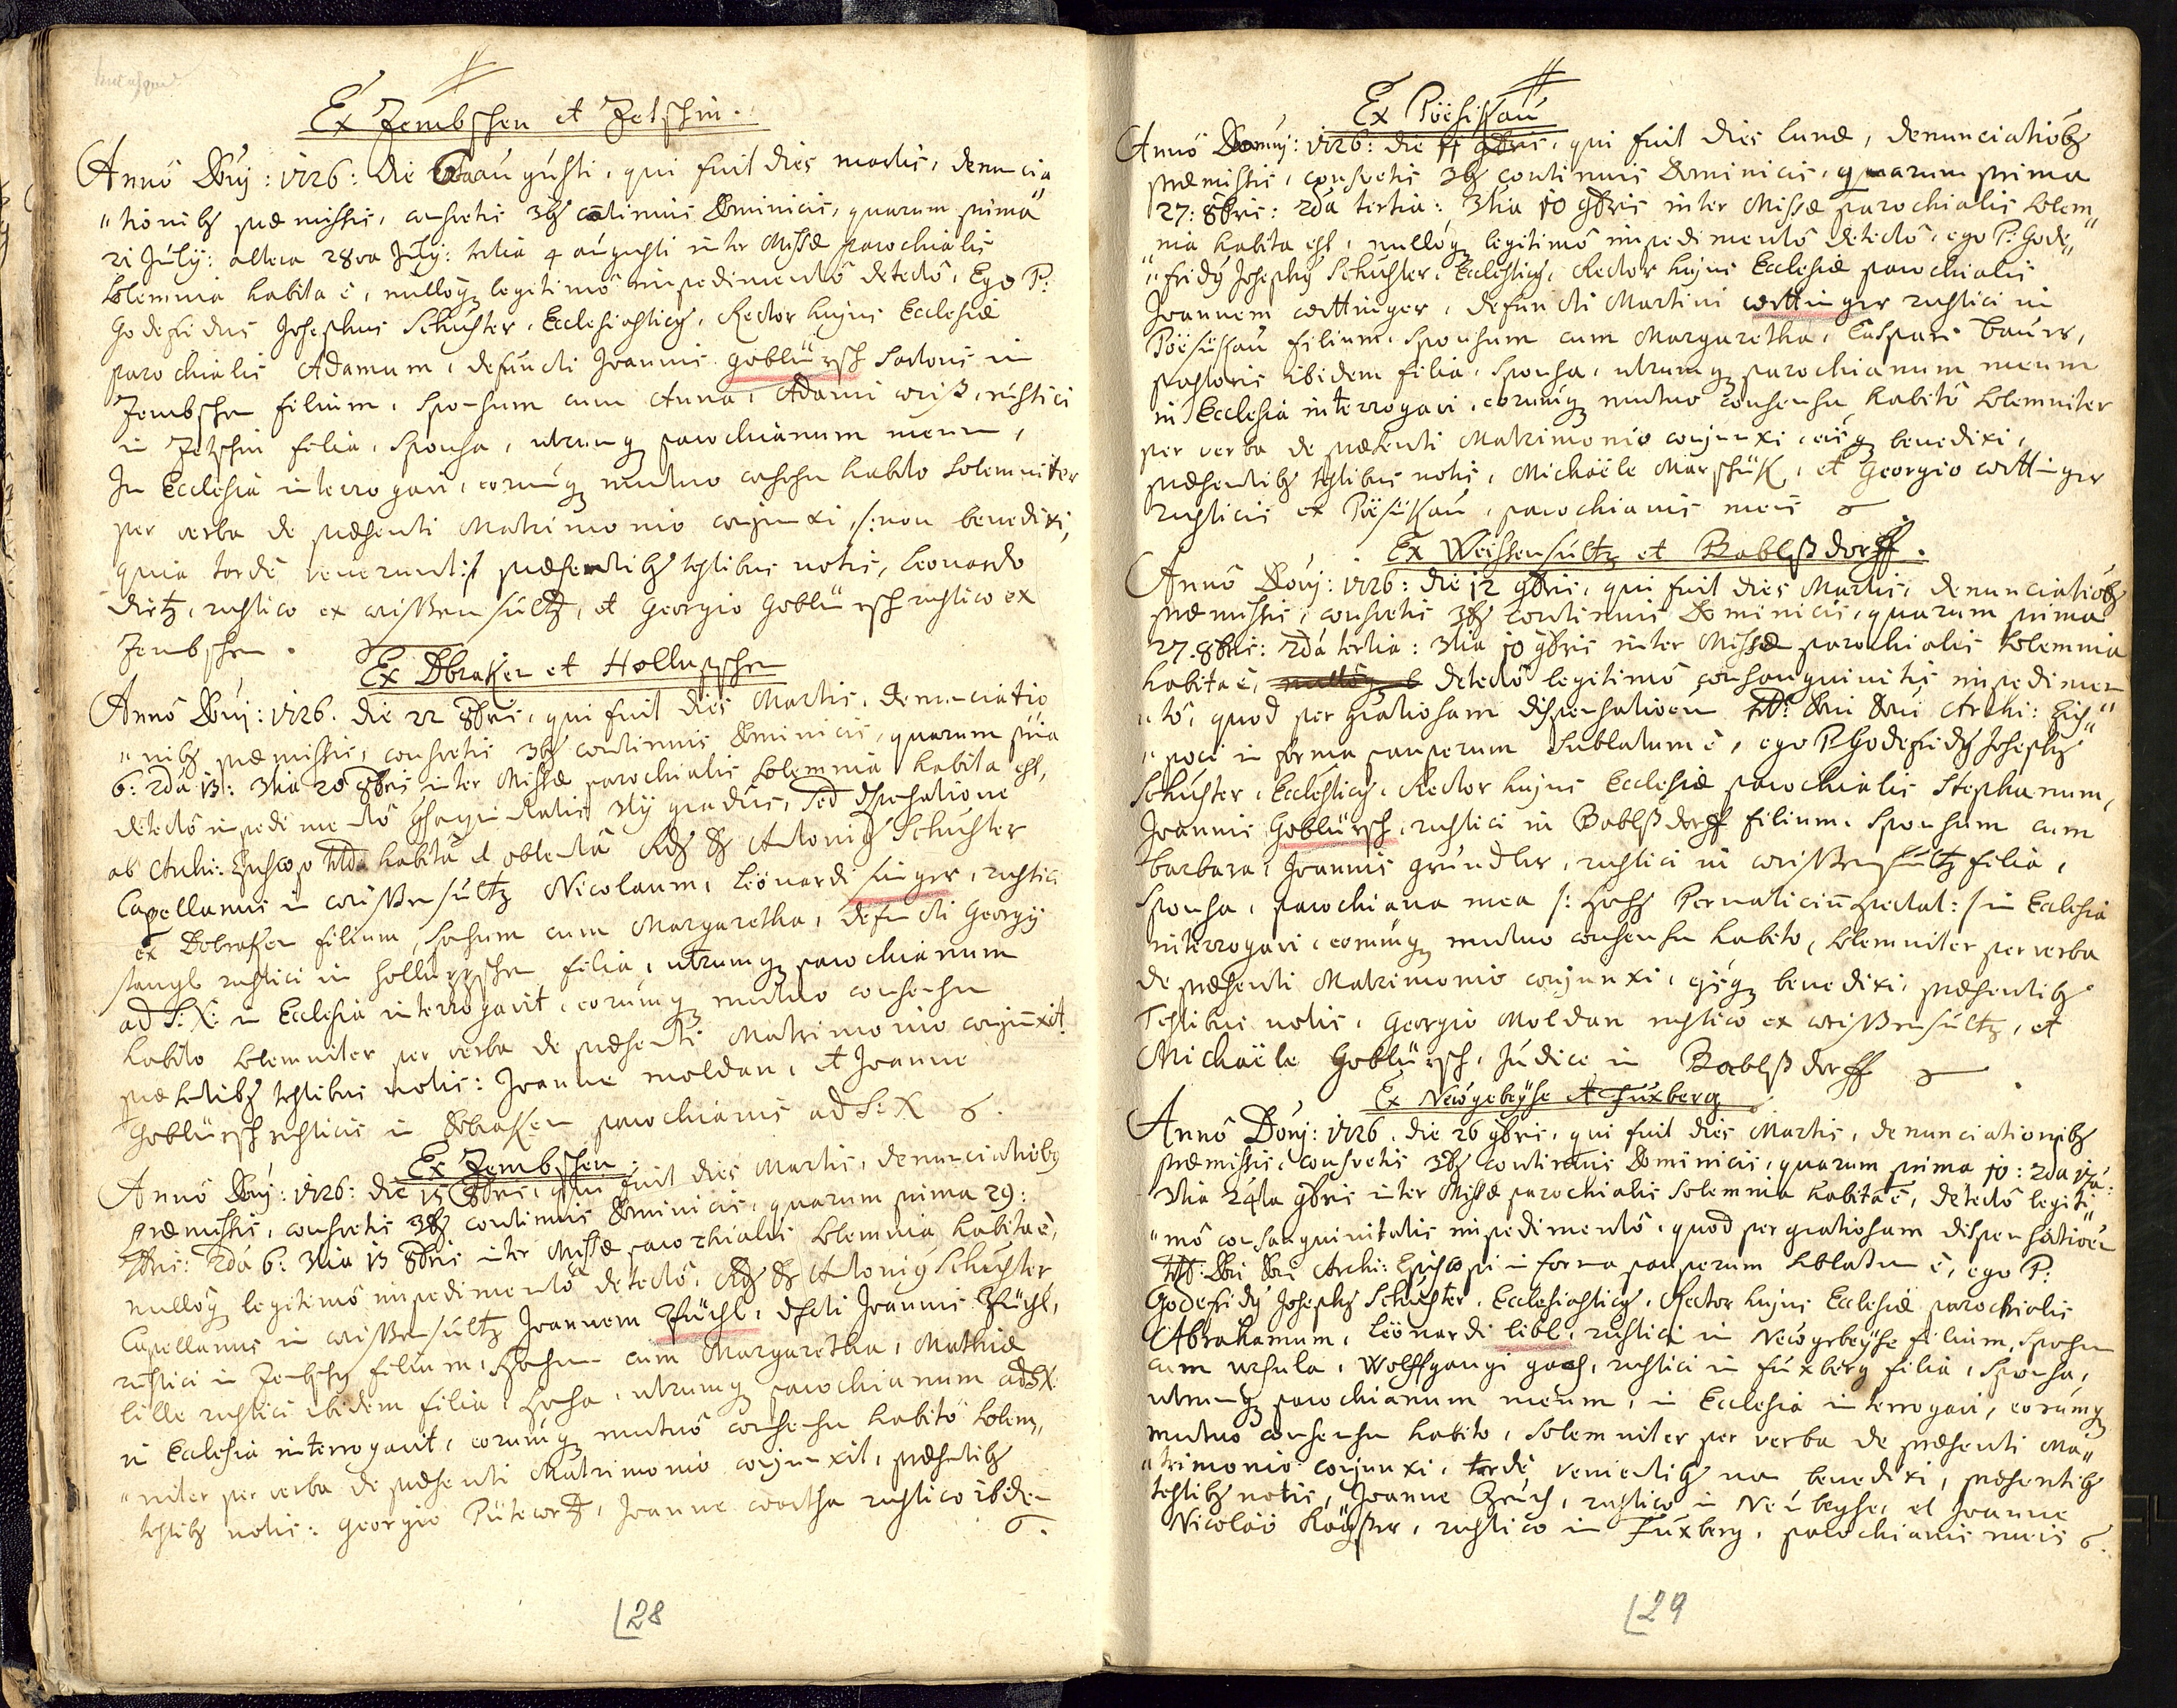 Ex Zembschen et Zetschin.
Annô Dóuj: 1726: die 6ta augusti, qui fuit dies martis, denuncia
"tionibȝ præmissis, consvetis 3bȝ cōtinuis Dominicis, quarum prima
21 July: altera 28va July: tertia 4 augusti inter Missæ parochialis
solemnia habita ē, nullóqȝ legitimô impedimentô detectô, Ego P:
Godefridus Josephus Schuster, Ecclesiasticȝ, Rector hujus Ecclesiæ
parochialis Adamum, defuncti Joannis goblürsch sartoris in
Zembschen filium, Sponsum cum Anna, Adami weiß, rustici
in Zetschin filia, Sponsa, utrumqȝ parochianum meum,
In Ecclesia interrogavi, eorumqȝ mutuo consensu habito solemniter
per verba de præsenti Matrimonio conjunxi, /:non benedixi,
quia tardè venerunt:/ præsentibȝ testibus notis, Leonardo
dietz, rustico ex weissensultz, et Georgio Goblürsch rustico ex
Zembschen.
Ex Dobraken et Hollupschen
Annô Dóuj: 1726. die 22 8bris, qui fuit dies Martis, denunciatio
"nibȝ præmissis, consvetis 3bȝ continuis Dominicis, quarum pria
6: 2da 13: 3tia 20 8bris inter Missæ parochialis solemnia habita est,
detectô impedimentô cȝsangvinitatis 3tij gradus, sed dispensatione
ab Archi: Episcopo habitâ et obtentâ Rȝ Dȝ Antoniȝ Schuster
Capellanus in weissensultz Nicolaum, Leonardi singer, rustici
ex Dobraken filium, sponsum cum Margaretha, defuncti Georgÿ
stangl rustici in hollupschen filia, utrumqȝ parochianum
ad S: X: in Ecclesia interrogavit, eorumqȝ mutuo consensu
habito solemniter per verba de præsenti Matrimonio conjunxit.
præsentibȝ testibus notis: Joanne moldan, et Joanne
Goblürsch rusticis in Dobraken parochianis ad S: X
Ex Zembschen.
Annô Dóuj: 1726: die 15 8bris, qui fuit dies Martis, denunciatiobȝ
præmissis, consvetis 3bȝ continuis Dominicis, quarum prima 29:
7bris: 2da 6: 3tia 13 8bris inter Missæ parochialis solemnia habita ē,
nullóqȝ legitimô impedimentô detectô, Rȝ Dȝ Antoniȝ Schuster
Capellanus in weissensultz Joannem Züchl, dfcti Joannis Züchl,
rustici in Zembschen filium, Sponsum cum Margaretha, Mathiæ
lille rustici ibidem filia, Sponsa, utrumqȝ parochianum ad S X
in Ecclesia interrogavit, eorumqȝ mutuô consensu habitô solem"
"niter per verba de præsenti Matrimonio conjunxit, præsentibȝ
testibȝ notis: Georgio Pütterer, Joanne woertha rustico ibidem
28
Ex Pöesissau
Annô Domnj: 1726: die 11 9bris, qui fuit dies lunæ, denunciatiōbȝ
præmissis, consvetis 3bȝ continuis Dominicis, quarum prima
27: 8bris: 2da tertia: 3tia 10 9bris inter Missæ parochialis solem"
"nia habita est, nullóqȝ legitimô impedimentô detectô, ego P: Gode"
"fridȝ Josephȝ Schuster, Ecclesticȝ, Rector hujus Ecclesiæ parochialis
Joannem wittinger, defuncti Martini wittinger rustici in
Pöesissau filium, Sponsum cum Margaretha, Caspari baurs,
pastoris ibidem filia, Sponsa, utrumqȝ parochianum meum
in Ecclesia interrogavi, eorumqȝ mutuo consensu habitô solemniter
per verba de præsenti Matrimonio conjunxi, eisqȝ benedixi,
præsentibȝ testibus notis, Michaële Marschik, et Georgio wittinger
rusticis ex Pöesissau, parochianis meis
Ex Weissensultz et Bablßdorff.
Annô Dóuj: 1726: die 12 9bris, qui fuit dies Martis, denunciatiōbȝ
præmissis, consvetis 3bȝ continuis Dominicis, quarum prima
27. 8bris: 2da tertia: 3tia 10 9bris inter Missæ parochialis solemnia
habita ē, detectô legitimô consanguinitis impedimen
"tô, quod per gratiosam dispensatioēm Dni Dni Archi: Epis"
"copi in forma pauperum sublatum ē, ego P. Godefridȝ Josephȝ
Schuster, Ecclesticȝ, Rector hujus Ecclesiæ parochialis Stephanum,
Joannis Goblürsch, rustici in Bablßdorff filium, Sponsum cum
barbara, Joannis gründler, rustici in weissensultz filia,
Sponsa, parochiana mea /: Sponsȝ Pernaticium spectat:/ in Ecclesia
interrogavi, eorumqȝ mutuo consensu habito, solemniter per verba
de præsenti Matrimonio conjunxi, eisqȝ benedixi, præsentibȝ
Testibus notis, Georgio Moldan rustico ex weissensultz, et
Michaële Goblürsch, Judice in Bablßdorff
Ex Newgebeÿse et Fuxberg
Annô Dóuj: 1726. die 26 9bris, qui fuit dies Martis, denunciationibȝ
præmissis, consvetis 3bȝ continuis Dominicis, quarum prima 10: 2da 17a:
3tia 24ta 9bris inter Missæ parochialis solemnia habita ē, detectô legiti"
"mô consanguinitatis impedimentô, quod per gratiosam dispensatioēm
Dni Dni Archi: Episcopi in forma pauperum sublatum ē, ego P:
Godefridȝ Josephȝ Schuster, Ecclesiasticȝ, Rector hujus Ecclesiæ parochialis
Abrahamum, Leonardi libl, rustici in Newgebeÿse filium, Sponsum
cum ursula, Wolffgangi gach, rustici in fuxberg filia, Sponsa,
utrumqȝ parochianum meum, in Ecclesia interrogavi, eorumqȝ
mutuo consensu habito, solemniter per verba de præsenti Ma"
"trimonio conjunxi, tardè venientibȝ non benedixi, præsentibȝ
testibȝ notis, Joanne Gruch, rustico in Neubeyse, et Joanne
Nicolao Kaÿser, rustico in Fuxberg, parochianis meis
29